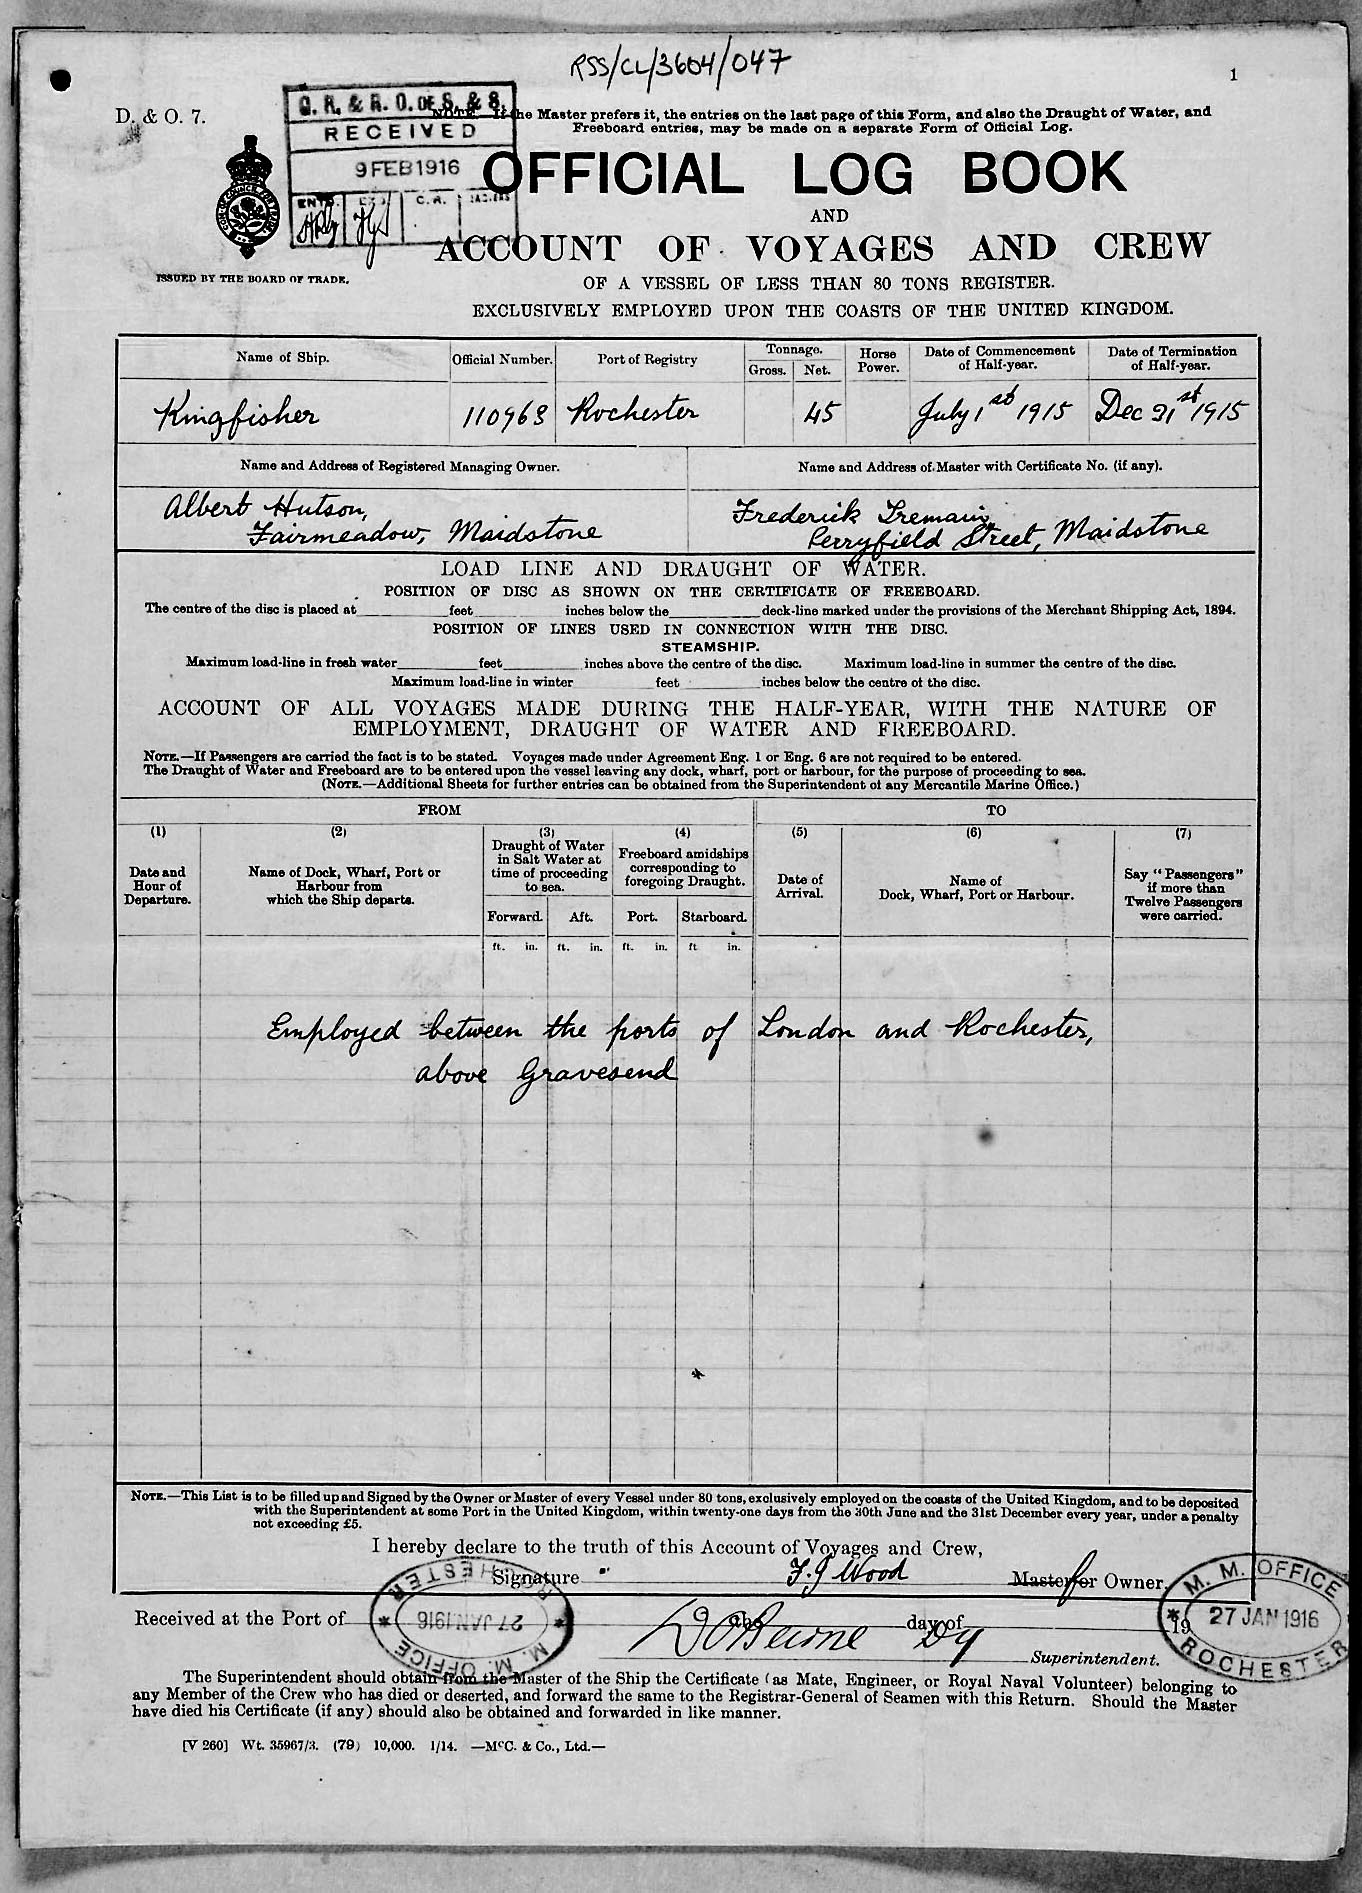 RSS/CL/3604/047
1
D. & O. 7.
RECEIVED
9 FEB 1916
ENTD.
C. R.
NOTE. If the Master prefers it, the entries on the last page of this Form, and also the Draught of Water, and
Freeboard entries, may be made on a separate Form of Official Log.
OFFICIAL LOG BOOK
AND
ACCOUNT OF VOYAGES AND CREW
ISSUED BY THE BOARD OF TRADE.
OF A VESSEL OF LESS THAN 80 TONS REGISTER.
EXCLUSIVELY EMPLOYED UPON THE COASTS OF THE UNITED KINGDOM.
Name of Ship. Official Number. Port of Registry Tonnage. Gross. Net. Horse Power. Date of Commencement of Half-year. Date of Termination of Half-year.
Kingfisher 110963 Rochester 45 July 1st 1915 Dec 31st 1915
Name and Address of Registered Managing Owner. Name and Address of Master with Certificate No. (if any).
Albert Hutson, Frederick Tremain,
Fairmeadow, Maidstone Perryfield Street, Maidstone
LOAD LINE AND DRAUGHT OF WATER.
POSITION OF DISC AS SHOWN ON THE CERTIFICATE OF FREEBOARD.
The centre of the disc is placed at feet inches below the deck-line marked under the provisions of the Merchant Shipping Act, 1894.
POSITION OF LINES USED IN CONNECTION WITH THE DISC.
STEAMSHIP.
Maximum load-line in fresh water feet inches above the centre of the disc. Maximum load-line in summer the centre of the disc.
Maximum load-line in winter feet inches below the centre of the disc.
ACCOUNT OF ALL VOYAGES MADE DURING THE HALF-YEAR, WITH THE NATURE OF
EMPLOYMENT, DRAUGHT OF WATER AND FREEBOARD.
NOTE.—If Passengers are carried the fact is to be stated. Voyages made under Agreement Eng. 1 or Eng. 6 are not required to be entered.
The Draught of Water and Freeboard are to be entered upon the vessel leaving any dock, wharf, port or harbour, for the purpose of proceeding to sea.
(NOTE.—Additional Sheets for further entries can be obtained from the Superintendent of any Mercantile Marine Office.)
FROM TO
(1) (2) (3) (4) (5) (6) (7)
Date and Hour of Departure.
Name of Dock, Wharf, Port or Harbour from which the Ship departs.
Draught of Water in Salt Water at time of proceeding to sea.
Freeboard amidships corresponding to foregoing Draught.
Date of Arrival.
Name of Dock, Wharf, Port or Harbour.
Say "Passengers" if more than Twelve Passengers were carried.
Forward. Aft. Port. Starboard.
ft. in. ft. in. ft. in. ft in.
Employed between the ports of London and Rochester,
above Gravesend
NOTE.—This List is to be filled up and Signed by the Owner or Master of every Vessel under 80 tons, exclusively employed on the coasts of the United Kingdom, and to be deposited
with the Superintendent at some Port in the United Kingdom, within twenty-one days from the 30th June and the 31st December every year, under a penalty
not exceeding £5.
I hereby declare to the truth of this Account of Voyages and Crew,
Signature F. J Wood Master or for Owner.
Received at the Port of the day of 19
Dy Superintendent.
M. M. OFFICE
27 JAN 1916
ROCHESTER
M. M. OFFICE
27 JAN 1916
ROCHESTER
The Superintendent should obtain from the Master of the Ship the Certificate (as Mate, Engineer, or Royal Naval Volunteer) belonging to
any Member of the Crew who has died or deserted, and forward the same to the Registrar-General of Seamen with this Return. Should the Master
have died his Certificate (if any) should also be obtained and forwarded in like manner.
[V 260] Wt. 35967/3. (79) 10,000. 1/14. —McC. & Co., Ltd.—